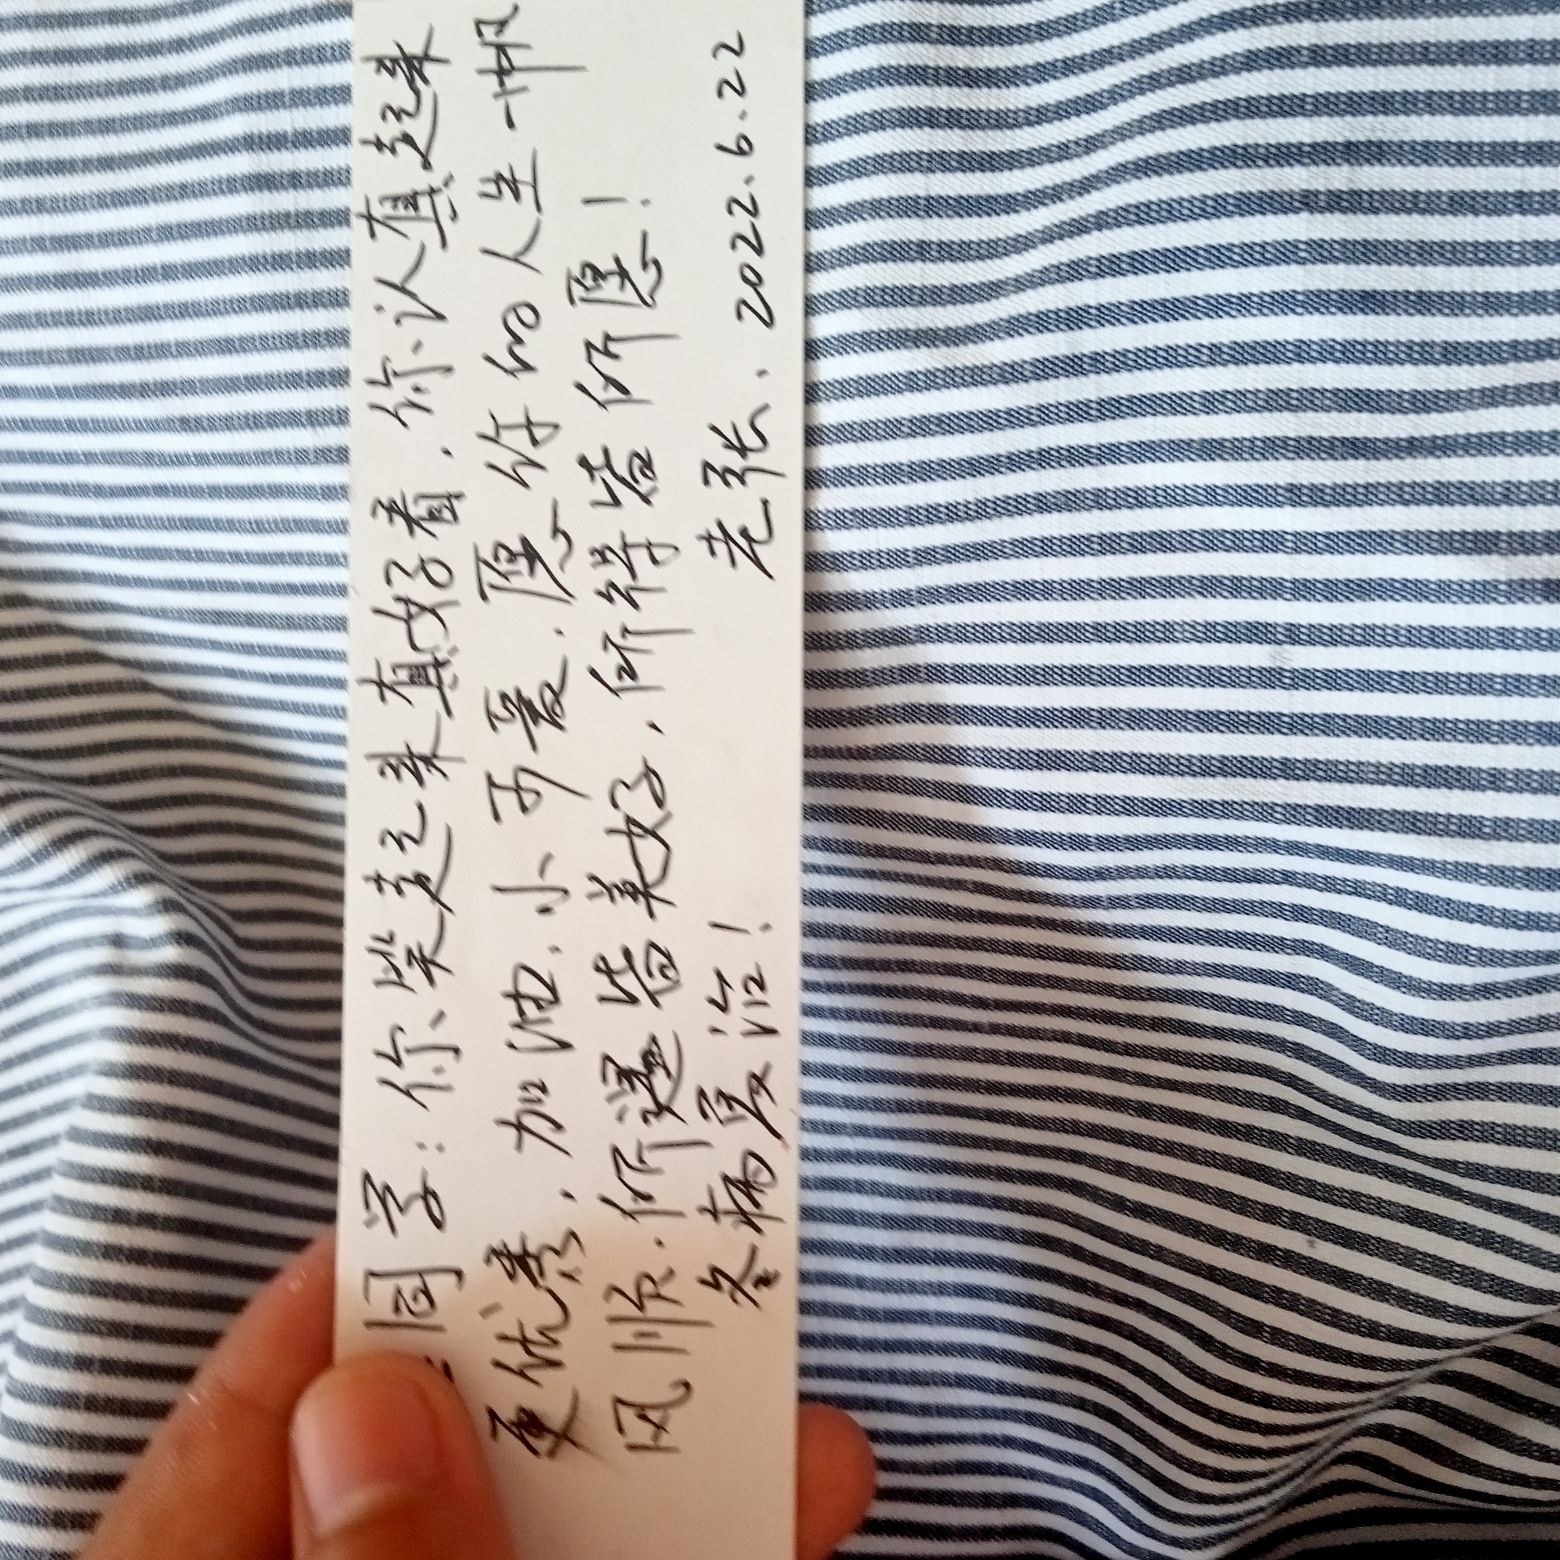 同学：你笑起来真好看，你认真起来
更优秀，加油，小可爱，愿你的人生一帆
风顺，所遇皆美好，所得皆所愿！
冬病夏治！ 老张、2022.6.22